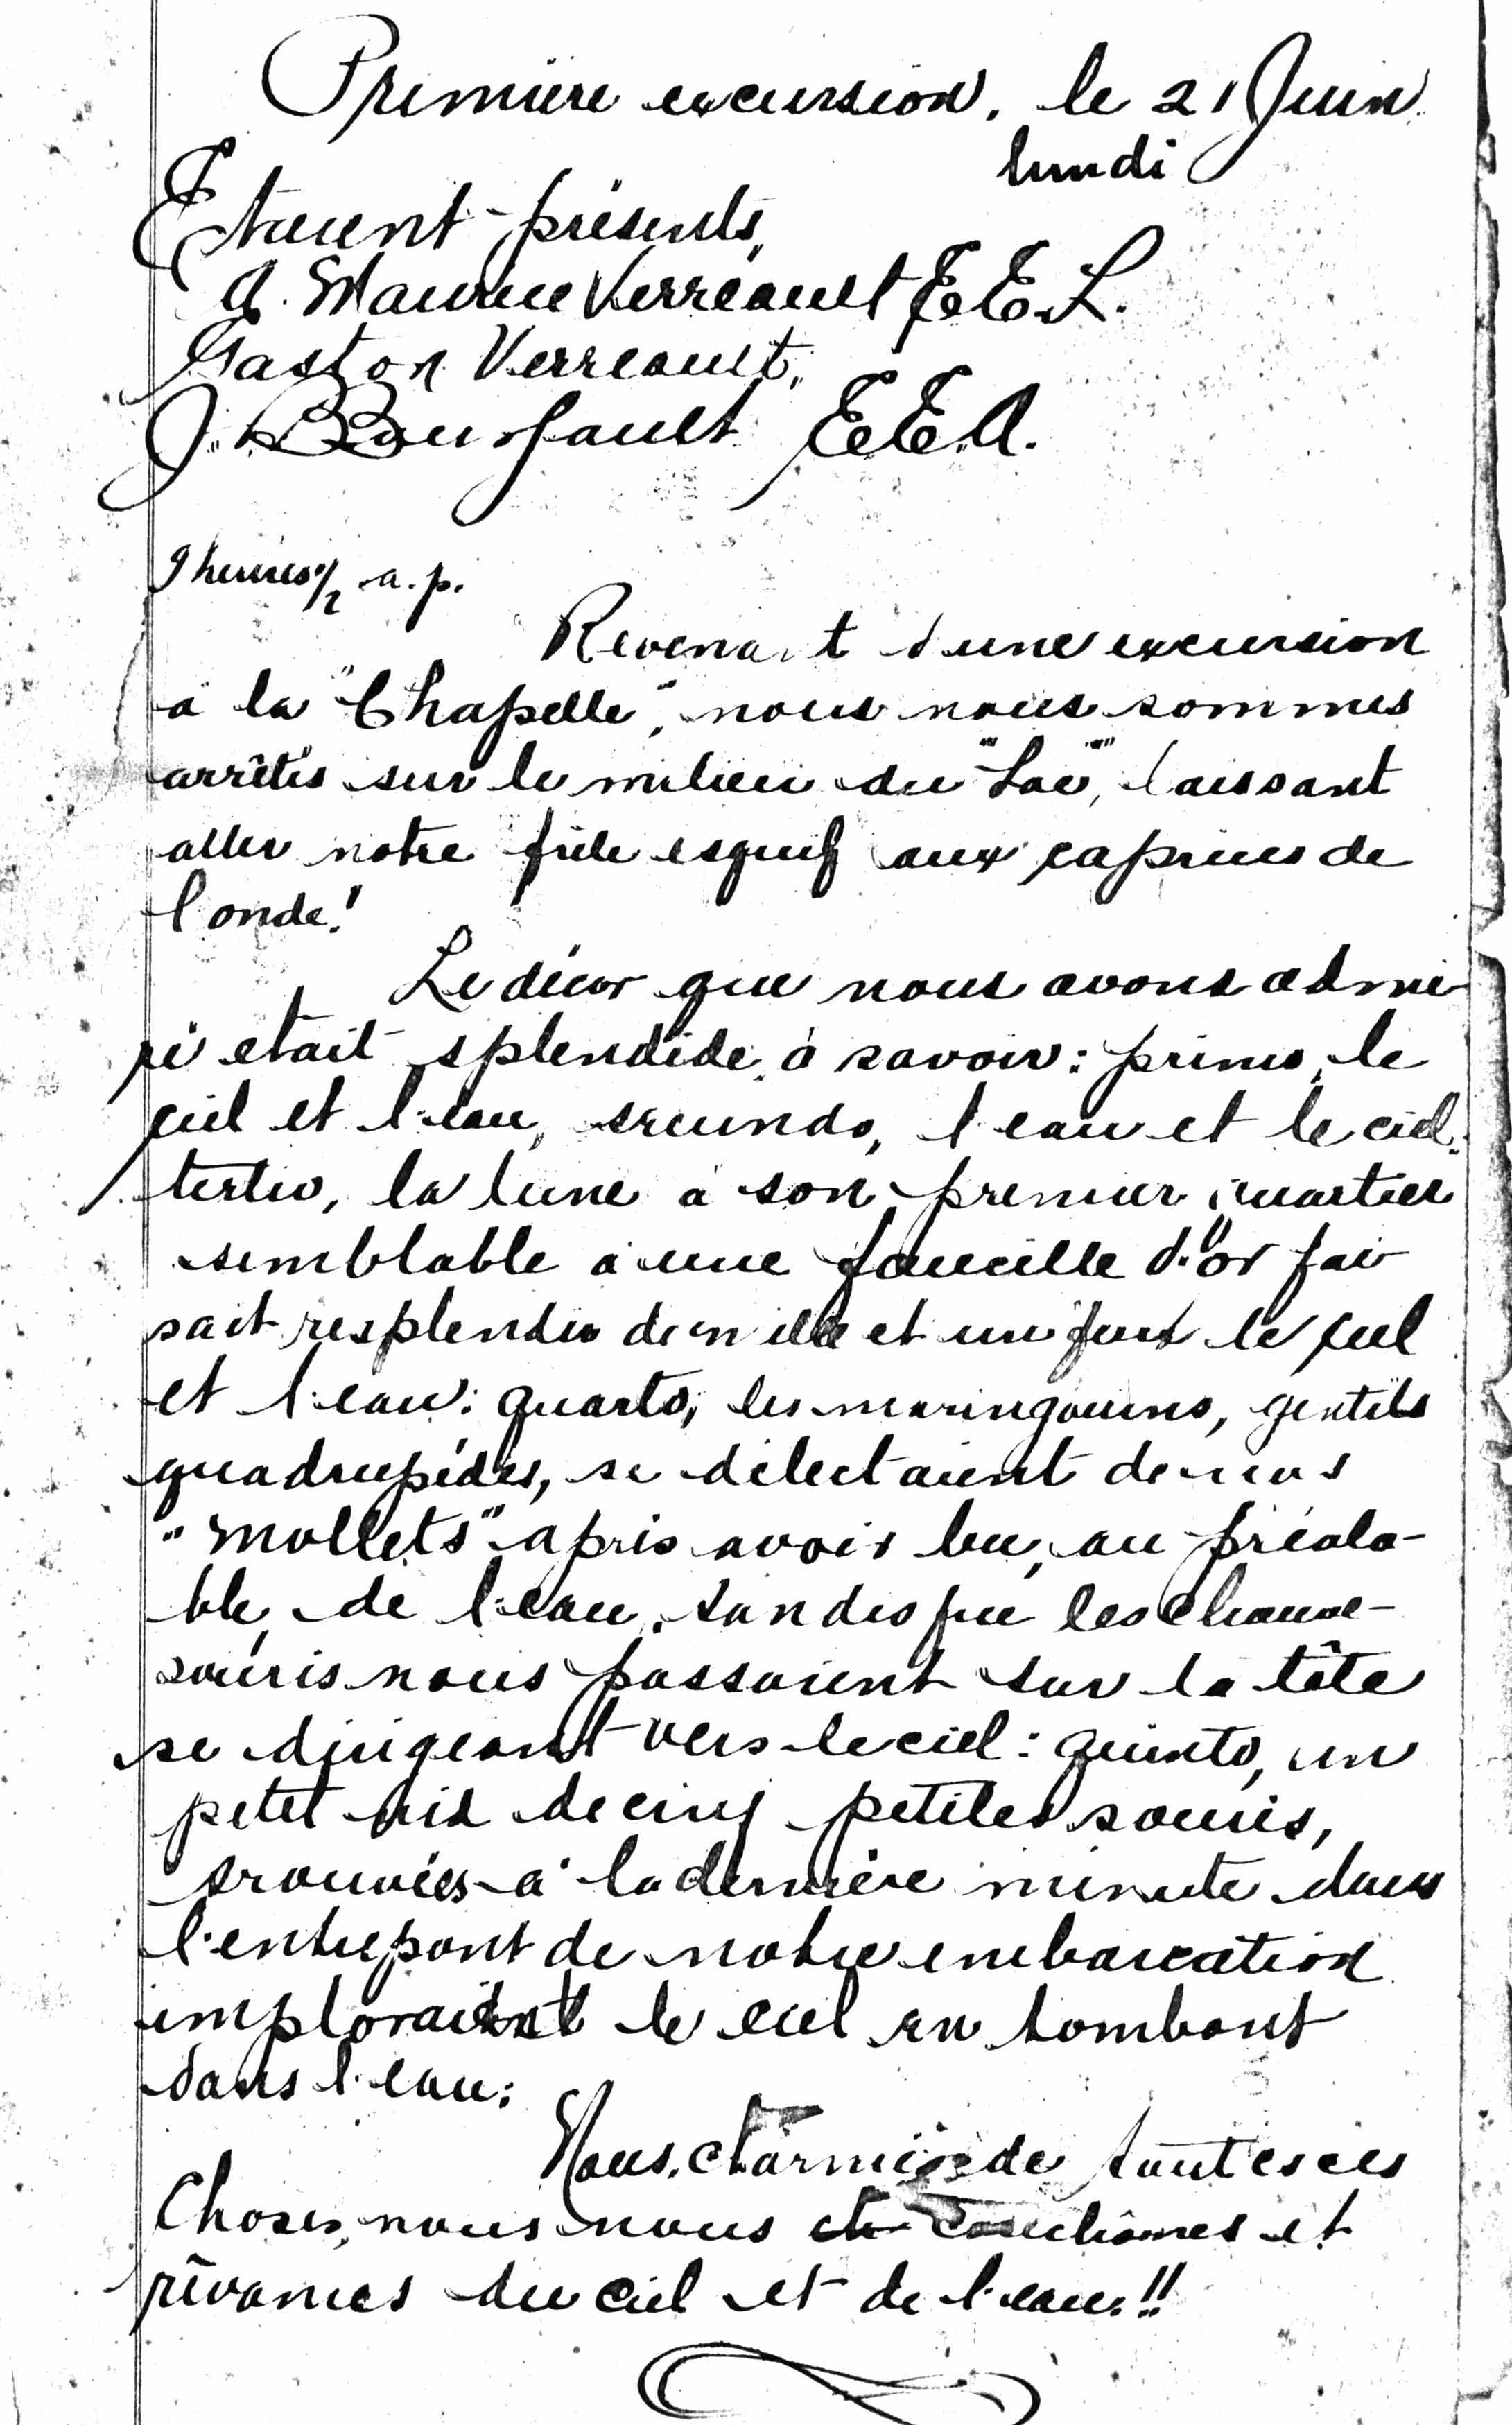 Première excursion, le 21 Juin
lundi
Etaient présents,
A. Maurice Verréault E.E.L.
Gaston Verreault,
J. Bourgault E.E.A.
9 heures 1/2 a.p.
Revenant d'une excursion
à la "Chapelle", nous nous sommes
arrêtés sur le milieu du "Lac", laissant
aller notre frêle esquif aux caprices de
l'onde!
Le décor que nous avons admi-
ré etait splendide, à savoir: primo, le
ciel et l'eau, secundo, l'eau et le ciel,
tertio, la lune à son premier quartier
semblable à une faucille d'or fai-
sait resplendir de mille et un feux le ciel
et l'eau: quarto, les maringouins, gentils
quadrupèdes, se délectaient de nos
"mollets" après avoir bu, au préala-
ble, de l'eau, tandis que les chauve-
souris nous passaient sur la tête
se dirigeant vers le ciel: quinto, un
petit nid de cinq petites souris,
trouvées à la dernière minute dans
l'entrepont de notre embarcation
imploraient le ciel en tombant
dans l'eau:
Nous, charmés de toutes ces
Choses, nous nous couchâmes et
rêvames du ciel et de l'eau!!